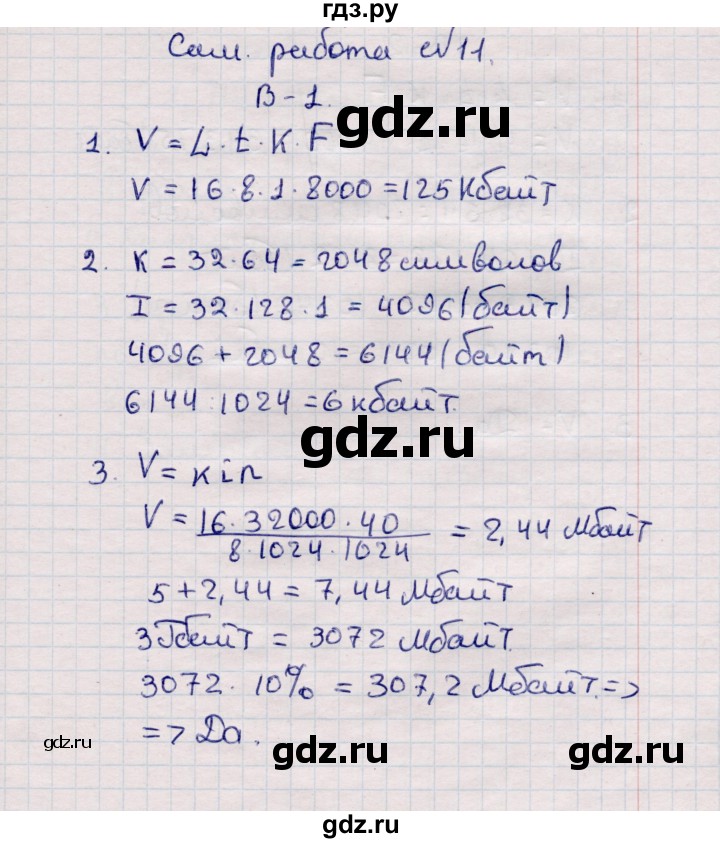 гдз.ру
Сам. работа №11.
В-1.
gdz.ru
1. V = L · t · K · F
V = 16 · 8 · 1 · 8000 = 125 Кбайт
2. K = 32 · 64 = 2048 символов
I = 32 · 128 · 1 = 4096 (байт)
4096 + 2048 = 6144 (байт)
6144 : 1024 = 6 кбайт.
gdz.ru
3. V = K i n
V = 16 · 32000 · 40 / 8 · 1024 · 1024 = 2,44 Мбайт
5 + 2,44 = 7,44 Мбайт
3 Гбайт = 3072 Мбайт.
3072 · 10% = 307,2 Мбайт. =>
=> Да.
gdz.ru
gdz.ru
gdz.ru
gdz.ru